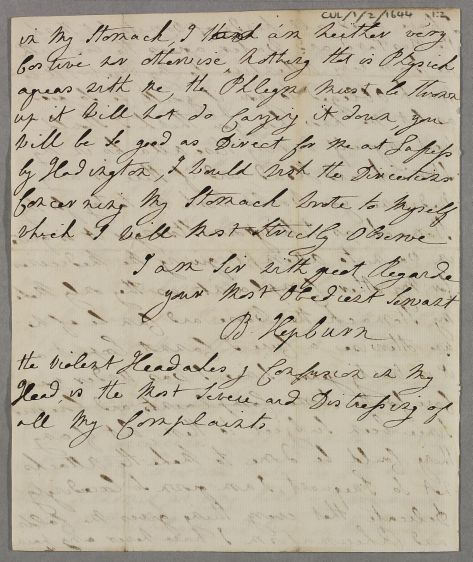 CUL/1/2/1644 1:2
in My Stomach, I am neither very
Costive nor otherwise Nothing that is Physick
agrees with me, the Phlegm must be thrown
up it will not do Carrying it down, you
will be so good as Direct for me at
by Hadington, I would wish the Directions
Concerning My Stomach wrote to Myself
which I will Most Strictly Observe
I am Sir with great Regarde
your Most Obedient Servant
B. Hepburn
the violent Headakes & Confusion in My
Head is the Most Severe and Distressing of
all My Complaints